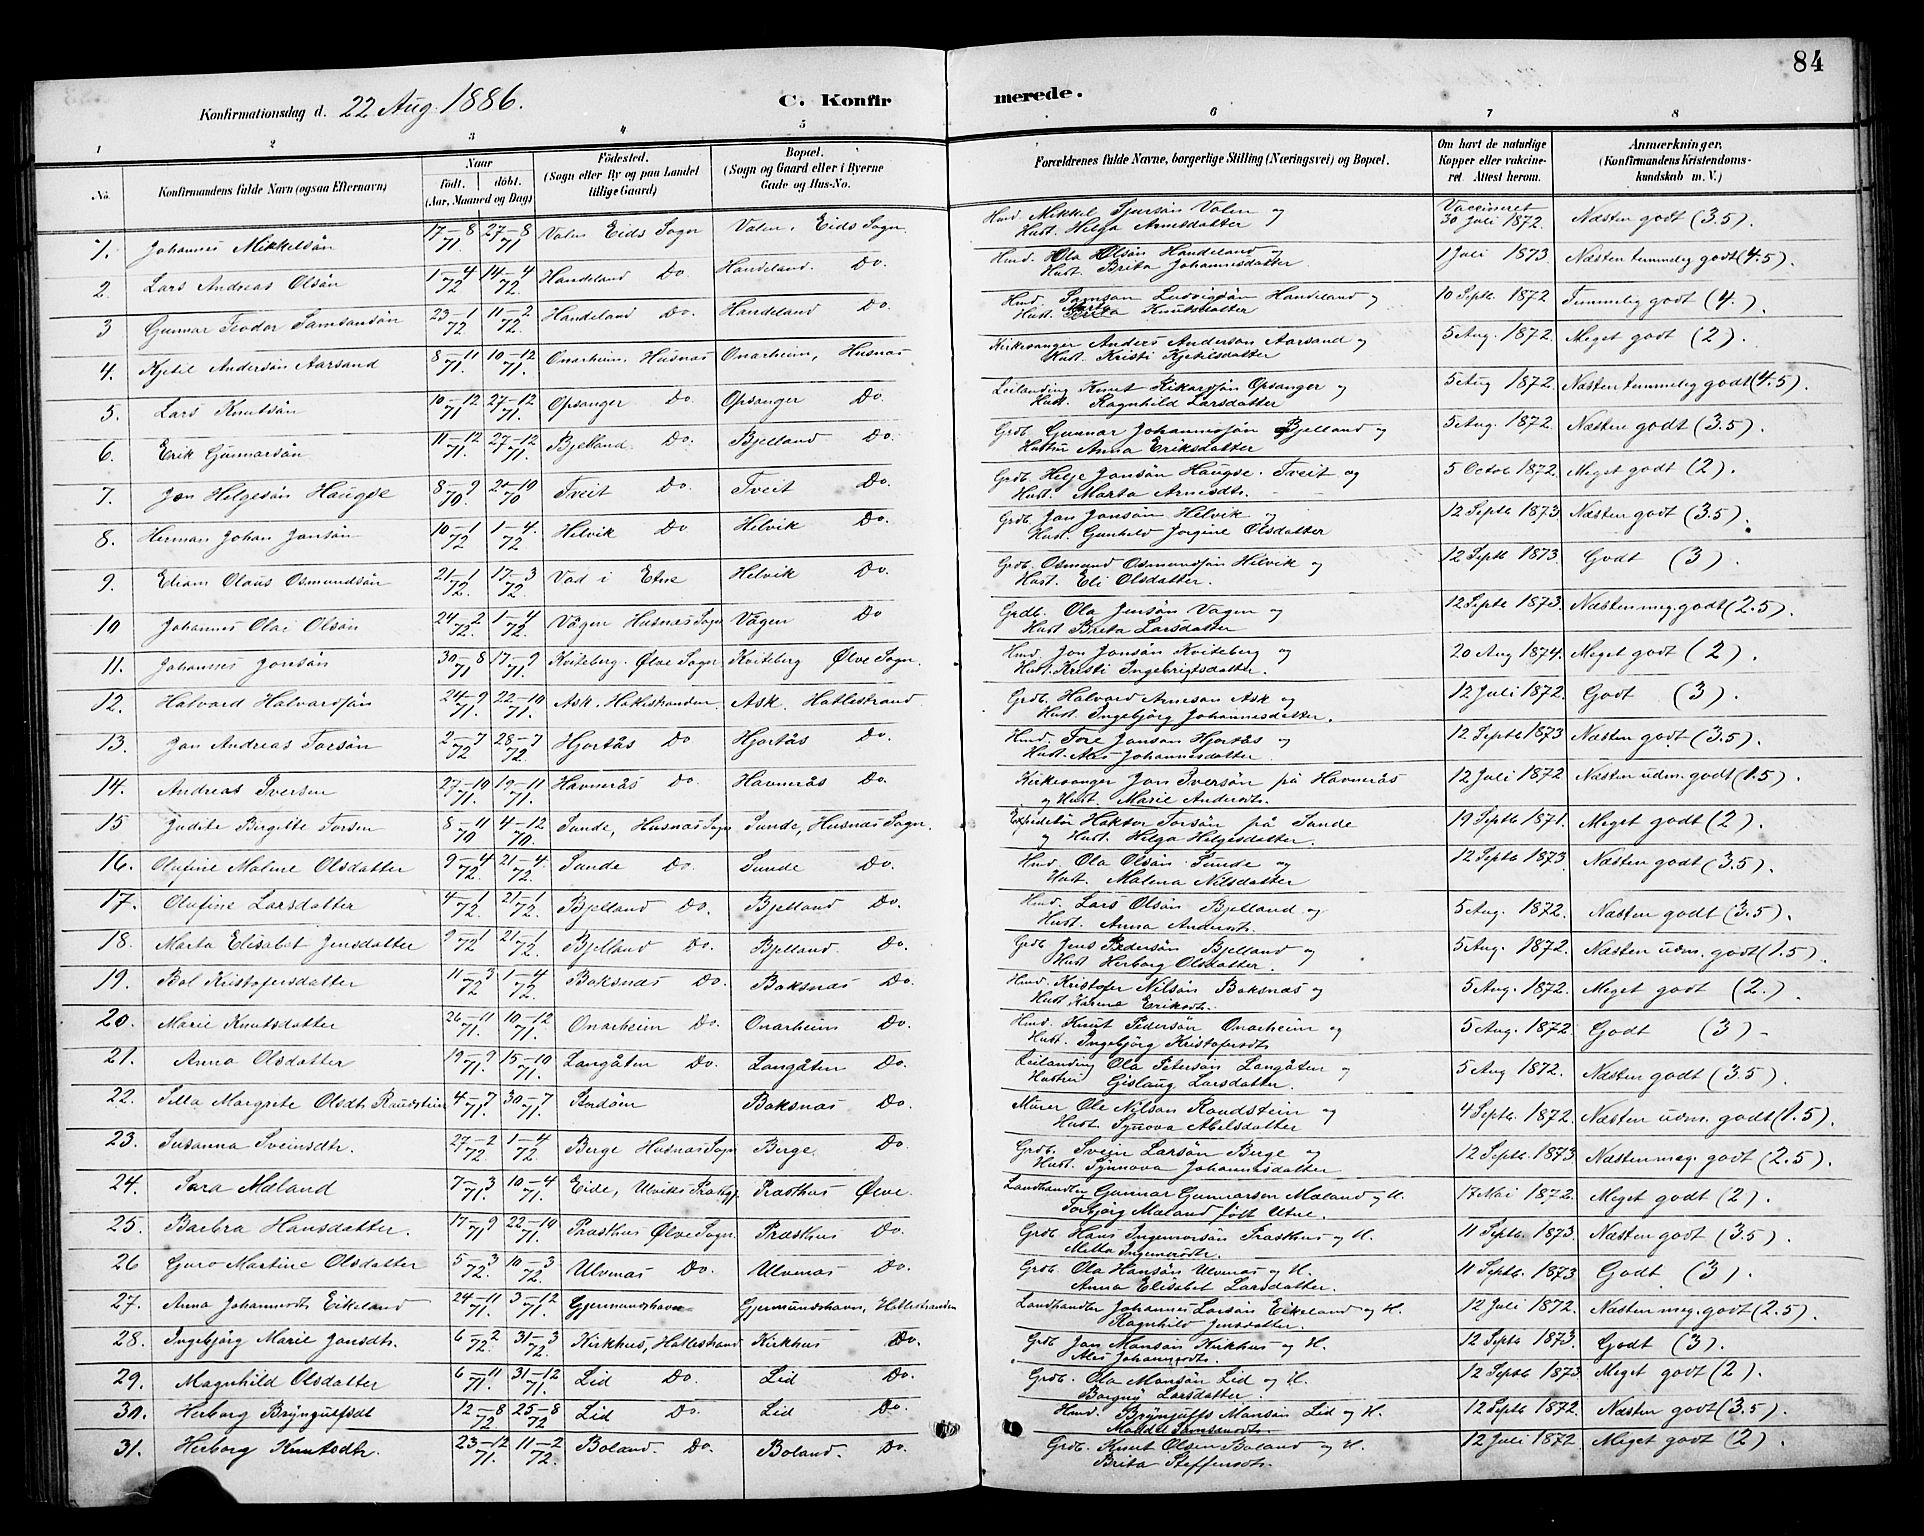 84
Konfirmationsdag d. 22 Aug. 1886.
C. Konfirmerede.
1 2 3 4 5 6 7 8
No. Konfirmandens fulde Navn (ogsaa Efternavn) Naar Født. døbt. (Aar, Maaned og Dag) Fødested. (Sogn eller By og paa Landet tillige Gaard) Bopæl. (Sogn og Gaard eller i Byerne Gade og Hus-No. Forældrenes fulde Navne, borgerlige Stilling (Næringsvei) og Bopæl. Om havt de naturlige Kopper eller vakcineret. Attest herom. Anmærkninger. (Konfirmandens Kristendomskundskab m. V.)
1. Johannes Mikkelsön 17-8 71. 27-8 71. Valen Eids Sogn Valen, Eids Sogn. Hmd. Mikkel Sjursön Valen og Hust. Helga Arnesdatter Vaccineret 30 Juli 1872. Næsten godt (3.5).
2. Lars Andreas Olsön 1-4 72 14-4 72. Handeland Do. Handeland. Do. Hmd. Ola Olsön Handeland og Hust. Brita Johannesdatter 1 Juli 1873 Næsten temmelig godt (4.5).
3 Gunnar Teodor Samsonsön 23-1 72 11-2 72. Handeland Do. Handeland Do. Hmd. Samson Ludvigsön Handeland og Hust. Knutsdatter 10 Septb. 1872 Temmelig godt (4.)
4. Kjetil Andersön Aarsand 8-11 71. 10-12 71. Onarheim, Husnæs Onarheim, Husnæs Kirkesanger Anders Anderson Aarsand og Hust. Kristi Kjetilsdatter 5 Aug. 1872. Meget godt (2).
5. Lars Knutsön 10-12 71 27-12 71. Opsanger Do. Opsanger Do. Leilænding Knut Rikardsön Opsanger og Hust. Ragnhild Larsdatter 5 Aug 1872. Næsten temmelig godt (4.5)
6. Erik Gunnarsön 11-12 71 27-12 71. Bjelland Do. Bjelland Do. Grdb. Gunnar Johannesön Bjelland og Hustru Anna Eriksdatter 5 Aug. 1872. Næsten godt (3.5).
7. Jon Helgesön Haugse 8-9 70 2-10 70 Tveit Do. Tveit Do. Grdb. Helje Jonsön Haugse. Tveit og Hust. Marta Arnesdt. 5 Octob 1872. Meget godt (2).
8. Herman Johan Jonsön 10-1 72 1-4 72. Helvik Do Helvik Do. Grdb. Jon Jonsön Helvik og Hust. Gunhild Jorgine Olsdatter 12 Septb 1873 Næsten godt (3.5).
9. Eliam Olaus Osmundsön 21-1 72. 17-3 72. Vad i Etne Helvik Do. Grdb. Osmund Osmundsön Helvik og Hust. Eli Olsdatter. 12 Septb 1873. Godt (3)
10 Johannes Olai Olsön 24-2 72. 1-4 72. Vågen Husnæs Sogn Vågen Do Grdb. Ola Jensön Vågen og Hust Brita Larsdatter 12 Septb 1873. Næsten meg. godt (2.5).
11. Johannes Jonsön 30-8 71 17-9 71. Kviteberg. Ølve Sogn Kviteberg Ølve Sogn. Hmd. Jon Jonsön Kviteberg og Hust. Kristi Ingebrigtsdatter. 20 Aug 1874. Meget godt (2).
12. Halvard Halvardsön 24-9 71. 22-10 71. Ask. Hatlestranden Ask. Hatlestrand Grdb. Halvard Arneson Ask og Hust. Ingebjörg Johannesdatter. 12 Juli 1872. Godt (3).
13. Jon Andreas Torsön 2-7 72 28-7 72. Hjortås Do Hjortås Do. Hmd. Tore Jonson Hjortås og Hust. Ales Johannesdatter 12 Septb 1873 Næsten godt (3.5).
14. Andreas Iversen 27-10 71. 19-11 71. Havnerås Do. Havnerås Do. Kirkesanger Jon Iversön på Havnerås og Hust. Marie Andersdt. 12 Juli 1872 Næsten udm. godt (1.5).
15 Judite Birgitte Torsen 8-11 70 4-12 70. Sunde, Husnæs Sogn Sunde, Husnæs Sogn. Expeditör Haktor Torsön på Sunde og Hust. Helga Helgesdatter 19 Septb 1871. Meget godt (2).
16. Olufine Malene Olsdatter 9-4 72. 21-4 72. Sunde Do. Sunde Do. Hmd. Ola Olsön Sunde og Hust. Malena Nilsdatter 12 Septb 1873 Næsten godt (3.5).
17. Olufine Larsdatter 4-1 72. 21-1 72. Bjelland Do. Bjelland Do. Hmd. Lars Olsön Bjelland og Hust. Anna Andersdt. 5 Aug. 1872. Næsten godt (3.5).
18. Marta Elisabet Jensdatter 9-1 72. 21-1 72. Bjelland Do. Bjelland. Do. Grdb. Jens Pedersön Bjelland og Hust Herborg Olsdatter. 5 Aug. 1872. Næsten udm. godt (1.5).
19. Bol Kristofersdatter 11-3 72 1-4 72. Boksnæs Do. Boksnæs Do. Hmd. Kristofer Nilsön Boksnæs og Hust Karine Eriksdt. 5 Aug. 1872. Meget godt (2.).
20. Marie Knutsdatter 26-11 71. 10-12 71. Onarheim Do. Onarheim Do. Hmd. Knut Pedersön Onarheim og Hust. Ingebjörg Kristofersdt. 5 Aug. 1872. Godt (3) -
21. Anna Olsdatter 19-9 71. 15-10 71. Langåten Do. Langåten Do. Leilænding Ola Petersön Langåten og Hustru Gislaug Larsdatter. 5 Aug 1872. Næsten godt (3.5).
22. Silla Margrete Olsdt. Raudstein 4-7 71. 30-7 71. Boksnæs Do. Murer Ole Nilson Raudstein og Hust. Synova Abelsdatter 4 Septb. 1872. Næsten udm. godt (1.5).
23. Susanna Sveinsdtr. 27-2 72. 1-4 72. Berge Husnæs Sogn Berge. Do. Grdb. Svein Larsön Berge og Hust. Synnova Johannesdatter 12 Septb. 1873. Næsten meg. godt (2.5).
24. Sara Mæland 7-3 71. 10-4 71. Eide, Ulviks Præstgj. Præsthus Ølve. Landhandler Gunnar Gunnarsen Mæland og H. Torbjörg Mæland født Utne. 17 Mai 1872. Meget godt (2).
25. Barbra Hansdatter. 17-9 71 22-10 71. Præsthus Ølve Sogn. Præsthus Do. Grdb. Hans Ingemorsön Præsthus og H. Metta Ingemordtr. 11 Septb. 1873. Næsten godt (3.5)
26 Guro Martine Olsdatter 5-3 72. 10-3 72. Ulvenæs Do. Ulvenæs Do. Grdb. Ola Hansön Ulvenæs og H. Anna Elisabet Larsdatter. 11 Septb. 1873. Godt (3).
27. Anna Johannesdt. Eikeland 24-11 71. 3-12 71. Gjermundshavn Gjermundshavn, Hatlestranden Landhandler Johannes Larsön Eikeland og H. Ragnhild Jensdatter. 12 Juli 1872. Næsten meg. godt (2.5).
28. Ingebjörg Marie Jonsdt. 6-2 72. 31-3 72. Kirkhus, Hatlestrand Kirkhus Do. Grdb. Jon Monsön Kirkhus og H. Ales Johannesdt. 12 Septb 1873. Godt (3).
29. Magnhild Olsdatter 6-11 71. 31-12 71. Lid Do. Lid Do. Grdb. Ola Monsön Lid og H. Borgny Larsdatter. 12 Septb 1873. Meget godt (2).
30. Herborg Bryngulfsdt 12-8 72 25-8 72. Lid Do. Lid Do. Hmd. Brynjulfs Monsön Lid og H. Samsonsdt. 12 Septb 1872. Næsten godt (3.5).
31. Herborg Knutsdtr. 23-12 71. 11-2 72. Boland. Do. Boland. Do. Grdb. Knut Olsen Boland og H. Brita Steffensdt. 12 Juli 1872 Meget godt (2).